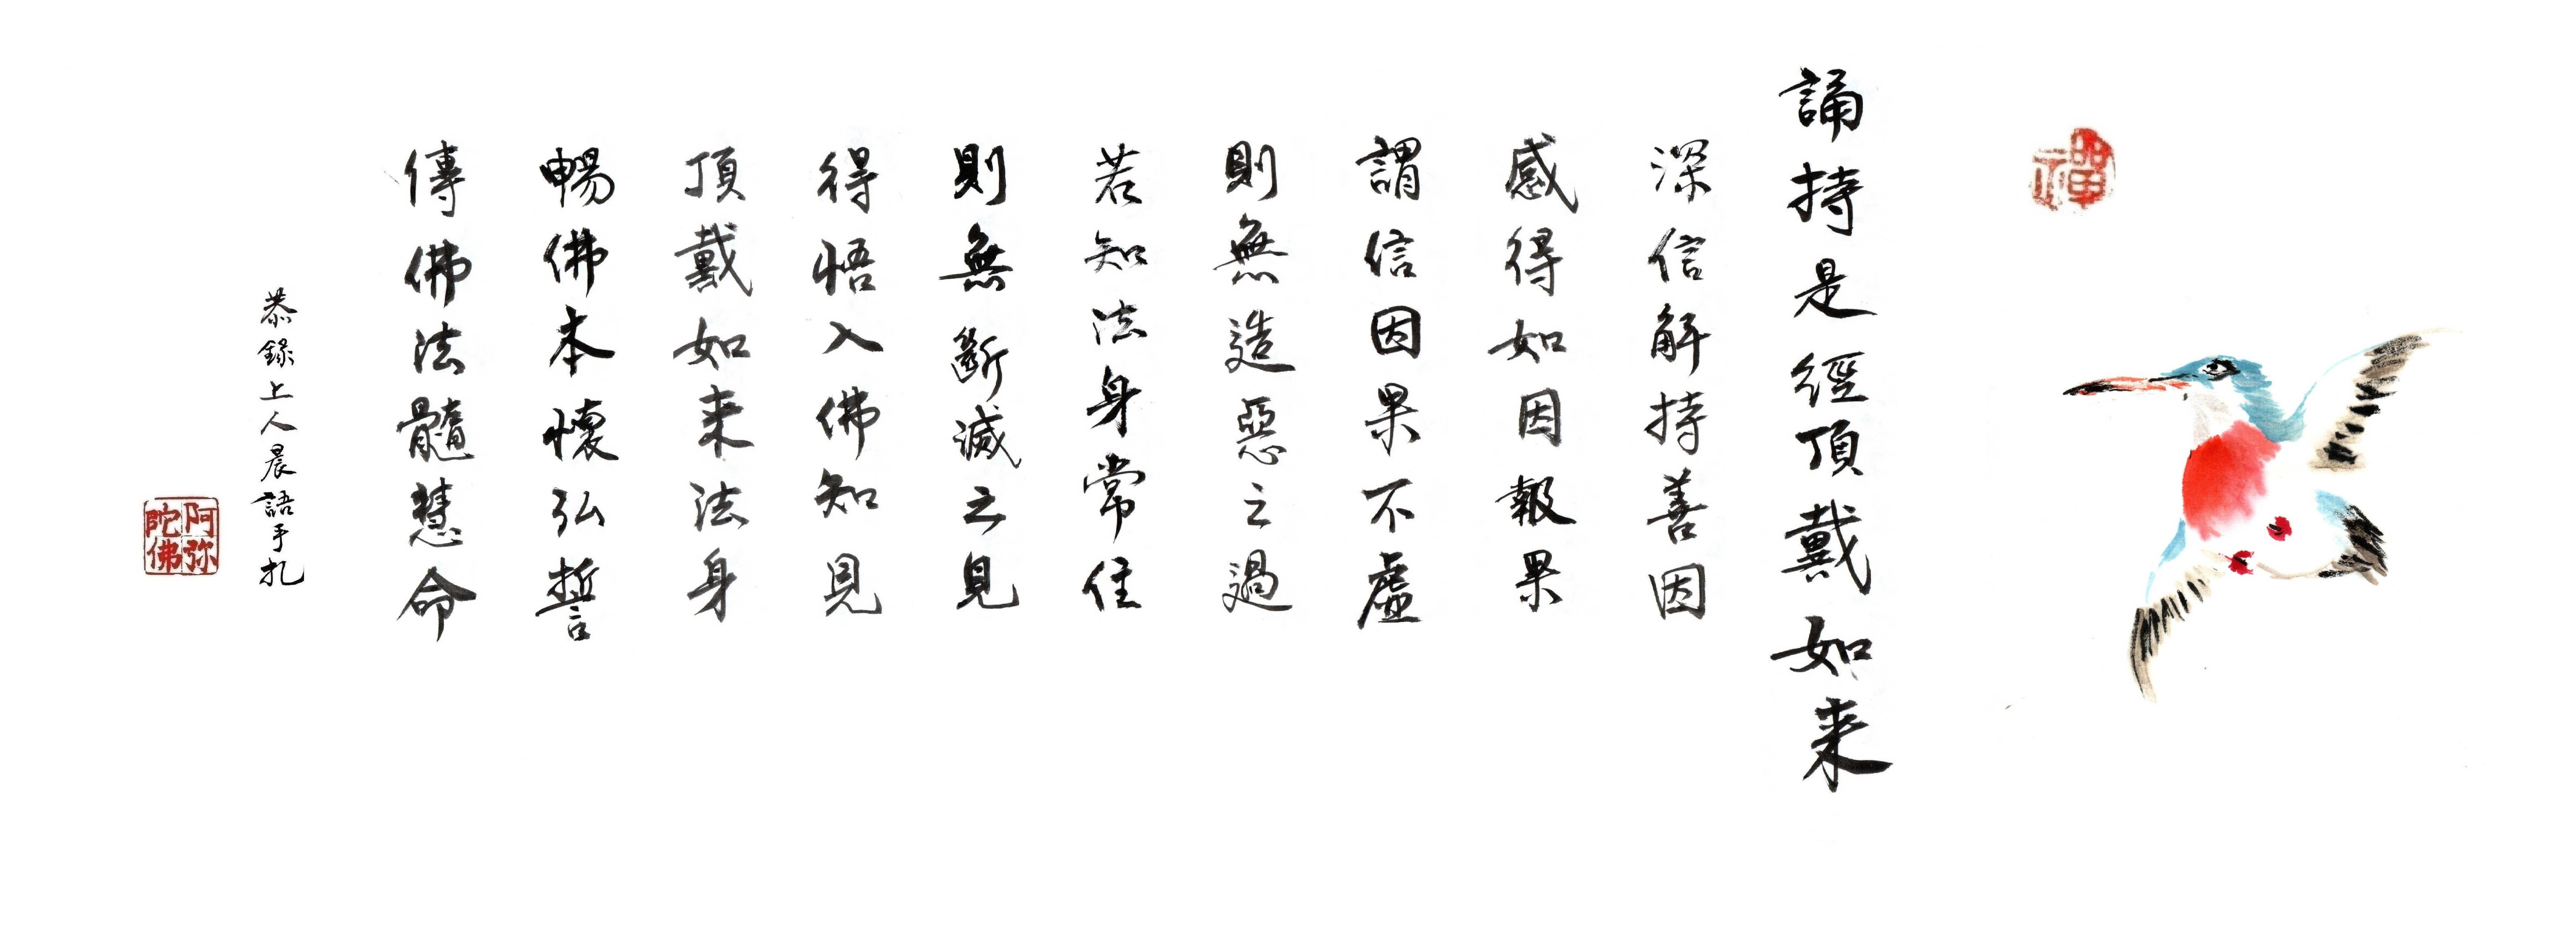 禪
誦持是經頂戴如来
深信解持善因
感得如因報果
謂信因果不虛
則無造惡之過
若知法身常住
則無斷滅之見
得悟入佛知見
頂戴如来法身
暢佛本懷弘誓
傳佛法髓慧命
恭錄上人晨語手扎
阿弥陀佛